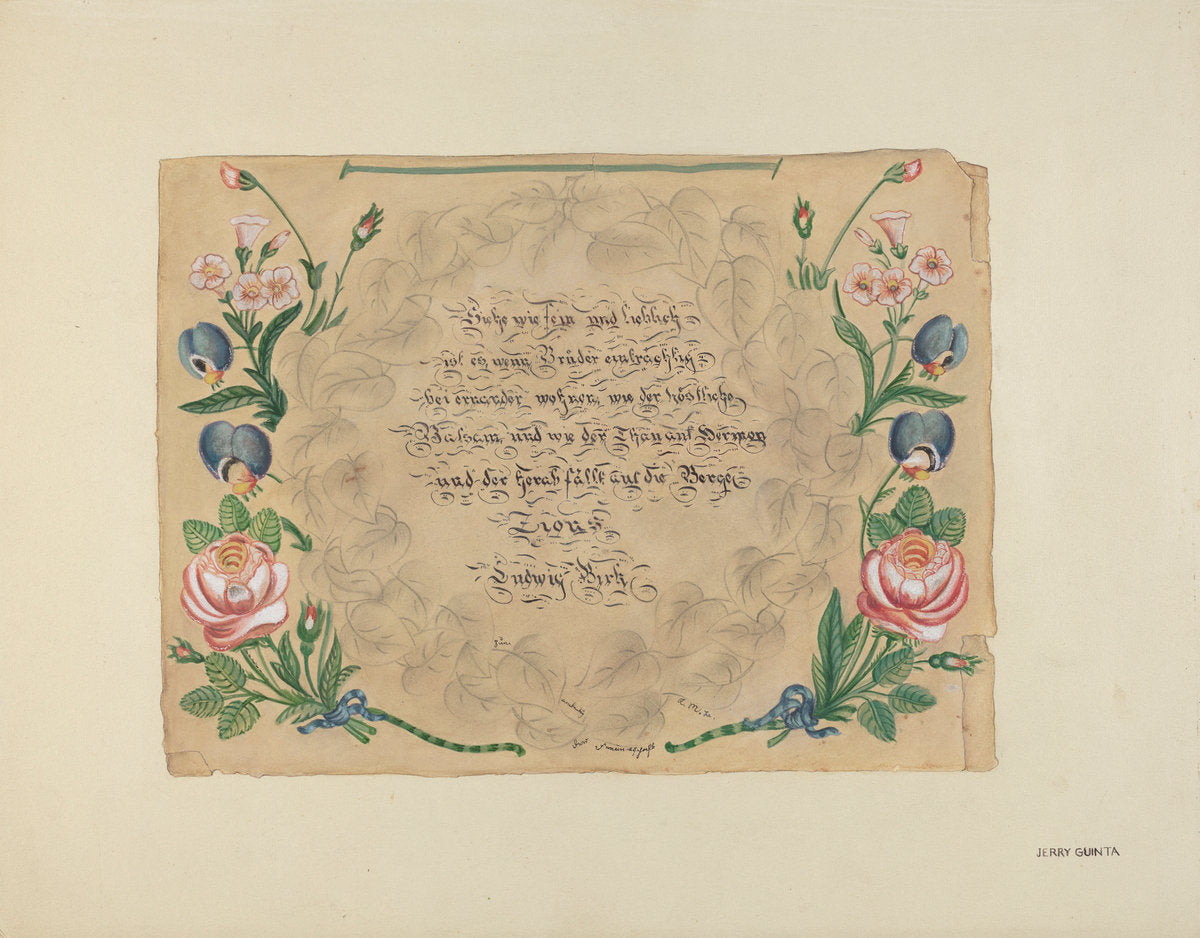 Siehe wie fein und lieblich
ist es wenn Brüder einträchtig
bei einander wohnen, wie der köstliche
Balsam, und wie der Thau auf Hermon
und der herab fällt auf die Berge
Zions
Ludwig Birk
JERRY GUINTA